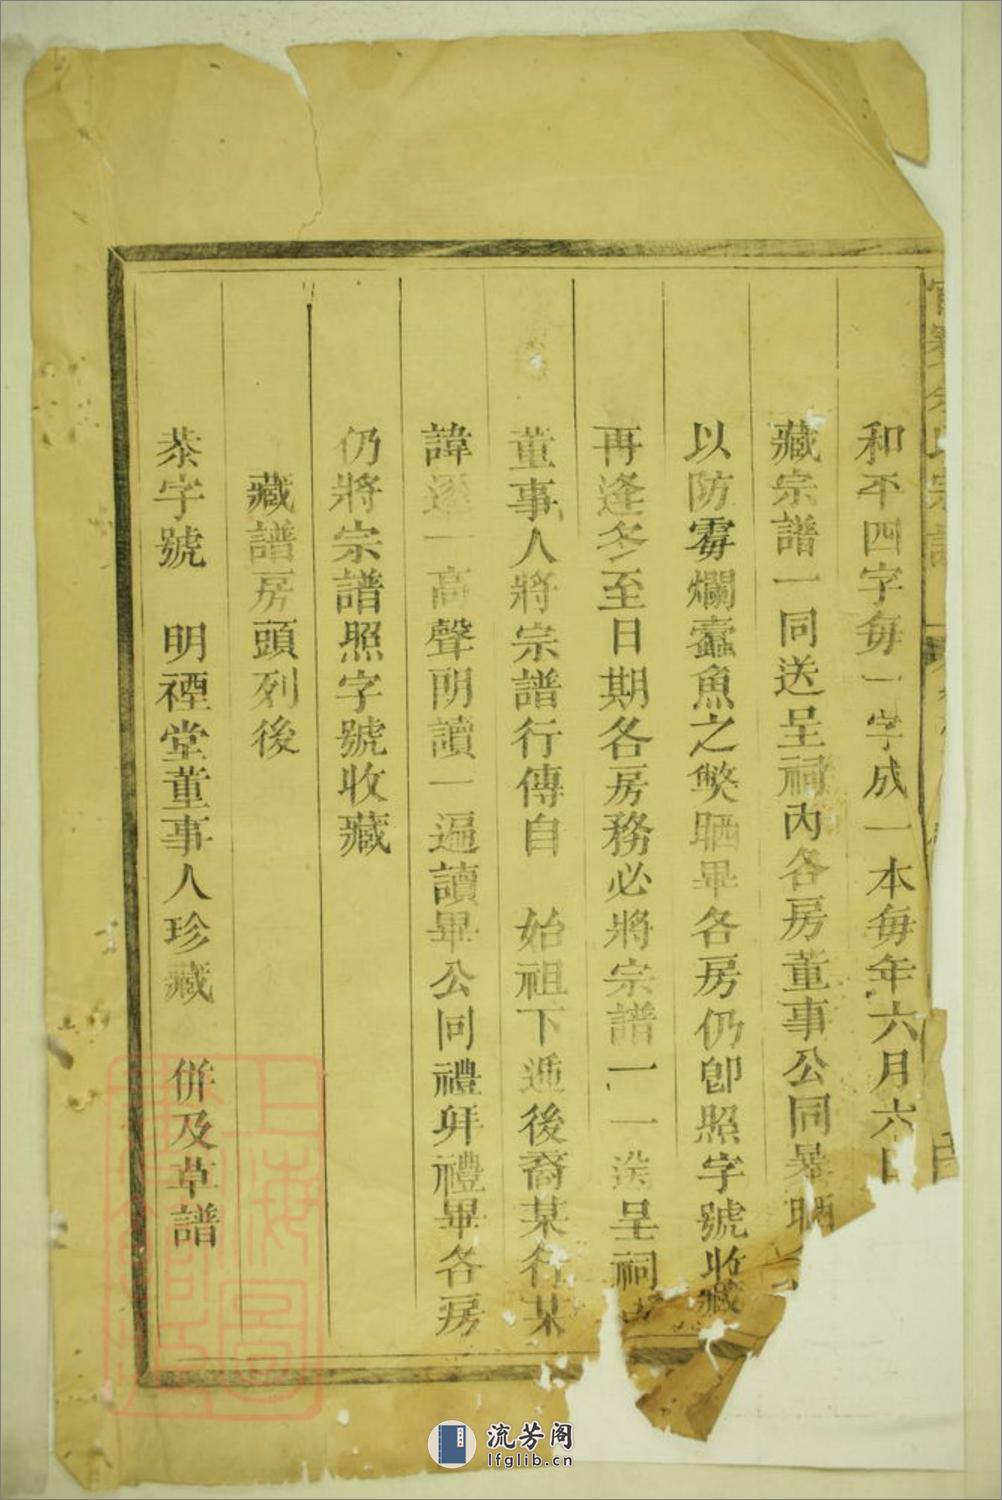 和平四字每一字成一本每年六月六日
藏宗譜一同送呈祠內各房董事公同暴晒
以防霉爛蠹魚之獘晒畢各房仍卽照字號收藏
再逢冬至日期各房務必將宗譜一一送呈祠
董事人將宗譜行傳自 始祖下遞後裔某行某
諱逐一高聲朗讀一遍讀畢公同禮拜禮畢各房
仍將宗譜照字號收藏
藏譜房頭列後
恭字號 明禋堂董事人珍藏 併及草譜
氏宗譜
上海圖
流芳阁
lfglib.cn